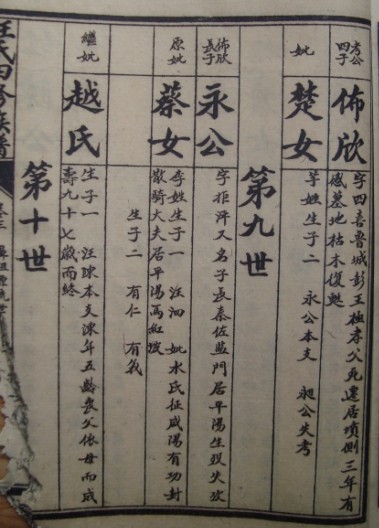 考公
四子
佈欣
字四喜魯城彭王極孝公死遷居墳側三年有
感墓地枯木復甦
妣
楚女
羋姓生子二 永公本支 昶公失考
第九世
佈欣
長子
永公
字 又名子長秦佐監門居平陽生歿失攷
原妣
蔡女
姓生子一 汪泗 妣水氏征咸陽有功封
散騎大夫居平陽高紅
生子二 有仁 有義
繼妣
越氏
生子一 汪陳本支陳年五齡喪父依母而成
壽九十七歲而終
第十世
汪氏四修族譜
卷三